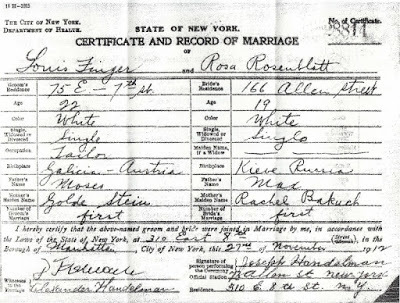 THE CITY OF NEW YORK.
DEPARTMENT OF HEALTH.
STATE OF NEW YORK.
No. of Certificate.
CERTIFICATE AND RECORD OF MARRIAGE
OF
Louis Finger and Rosa Rosenblatt
Groom's Residence 75 E - 7th St. Bride's Residence 166 Allen Street
Age 22 Age 19
Color White Color White
Single, Widowed or Divorced Single Single, Widowed or Divorced Single
Occupation Tailor Maiden Name, if a Widow
Birthplace Galicia - Austria Birthplace Kieve Russia
Father's Name Moses Father's Name Max
Mother's Maiden Name Golde Stein Mother's Maiden Name Rachel Bakuch
Number of Groom's Marriage first Number of Bride's Marriage first
I hereby certify that the above-named groom and bride were joined in Marriage by me, in accordance with
the Laws of the State of New York, at 310 East 8th (Street), in the
Borough of Manhattan, City of New York, this 27th of November 1912
Signature of person performing the Ceremony Joseph Handelman
Witnesses to the Marriage Alexander Handelman
310 E. 8th St. N.Y.